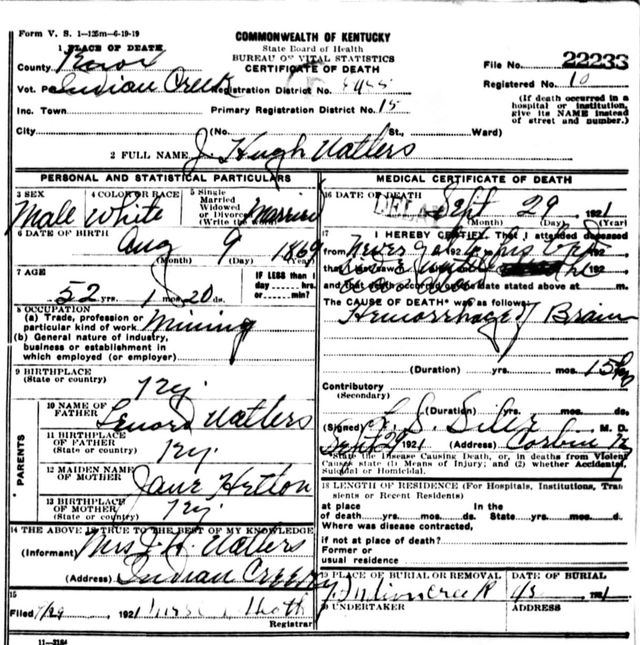 Form V. S. 1-125m-6-19-19
COMMONWEALTH OF KENTUCKY
State Board of Health
BUREAU OF VITAL STATISTICS
CERTIFICATE OF DEATH
1 PLACE OF DEATH
County Knox
File No. 22233
Vot. P Indian Creek Registration District No.
Registered No. 10
Inc. Town Primary Registration District No. 15
(If death occurred in a hospital or institution, give its NAME instead of street and number.)
City (No. St., Ward)
2 FULL NAME J. Hugh Watters
PERSONAL AND STATISTICAL PARTICULARS
3 SEX Male
4 COLOR OR RACE White
5 Single Married Widowed or Divorced (Write the word) Married
6 DATE OF BIRTH Aug 9 1869
(Month) (Day) (Year)
7 AGE
52 yrs. 1 mos. 20 ds.
IF LESS than 1 day ...... hrs. or ...... min.?
8 OCCUPATION
(a) Trade, profession or particular kind of work Mining
(b) General nature of industry, business or establishment in which employed (or employer)
9 BIRTHPLACE
(State or country) Ky.
PARENTS
10 NAME OF FATHER Watters
11 BIRTHPLACE OF FATHER (State or country) Ky.
12 MAIDEN NAME OF MOTHER Jane
13 BIRTHPLACE OF MOTHER (State or country) Ky
14 THE ABOVE IS TRUE TO THE BEST OF MY KNOWLEDGE
(Informant) Mrs J. H. Watters
(Address) Indian Creek Ky
15
Filed 1921
Registrar
11-3184
MEDICAL CERTIFICATE OF DEATH
16 DATE OF DEATH Sept 29 1921
(Month) (Day) (Year)
17 I HEREBY CERTIFY, That I attended deceased
from Never 192
192
and that death occurred on the date stated above at m.
The CAUSE OF DEATH* was as follows:
Hemorrhage of Brain
(Duration) yrs. mos. 15
Contributory
(Secondary)
(Duration) yrs. mos. ds.
(Signed) S. Siler M. D.
Sept 29 1921 (Address) Corbin Ky
*State the Disease Causing Death, or, in deaths from Violent Causes state (1) Means of Injury; and (2) whether Accidental, Suicidal or Homicidal.
18 LENGTH OF RESIDENCE (For Hospitals, Institutions, Transients or Recent Residents)
at place of death yrs. mos. ds. In the State yrs. mos. d
Where was disease contracted,
if not at place of death?
Former or
usual residence
19 PLACE OF BURIAL OR REMOVAL Indian Creek
DATE OF BURIAL
20 UNDERTAKER
ADDRESS